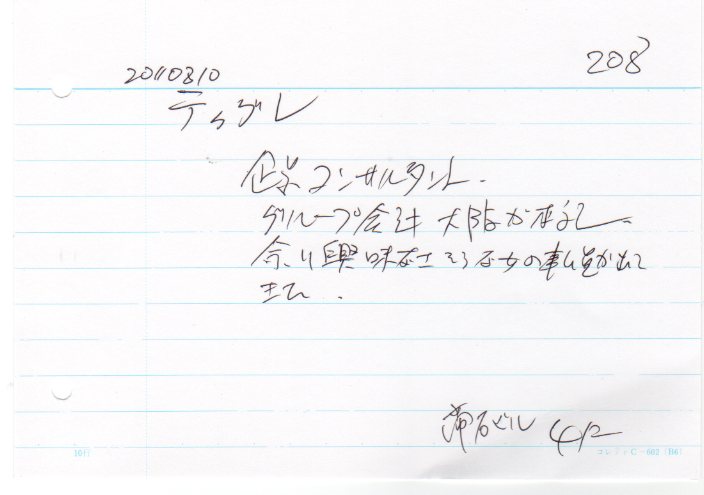 208
20110810
企業コンサルタント.
グループ会社 大阪が本社.
余り興味なさそうな女の事ム員が出て
きた.
ビル 4F
10行 コレクト C-602 (B6)